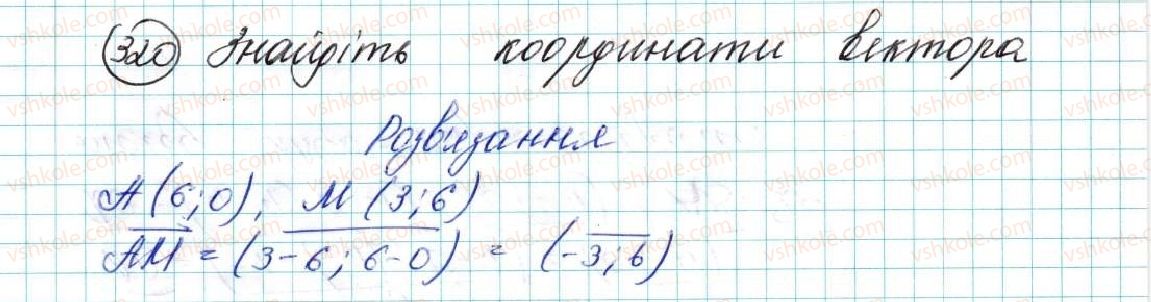 320 Знайдіть координати вектора
Розв'язання
A(6;0), M(3;6)
AM = (3-6; 6-0) = (-3; 6)